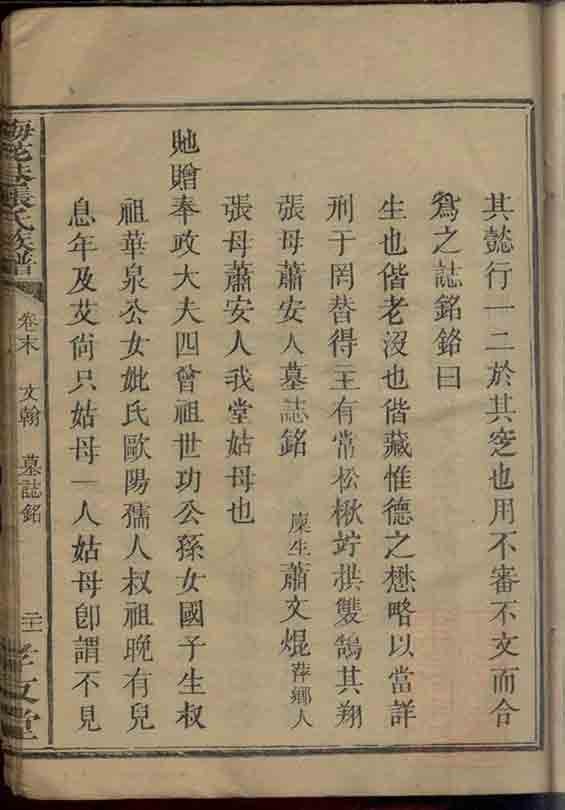 其懿行一二於其窆也用不審不文而合
爲之誌銘銘曰
生也偕老沒也偕藏惟德之懋略以當詳
刑于罔替得主有常松楸竚拱雙鵠其翔
張母蕭安人墓誌銘 廩生蕭文焜萍鄉人
張母蕭安人我堂姑母也
貤贈奉政大夫四曾祖世功公孫女國子生叔
祖華泉公女妣氏歐陽孺人叔祖晚有兒
息年及艾尙只姑母一人姑母卽謂不見
張氏族譜
卷末 文翰 墓誌銘
孝友堂